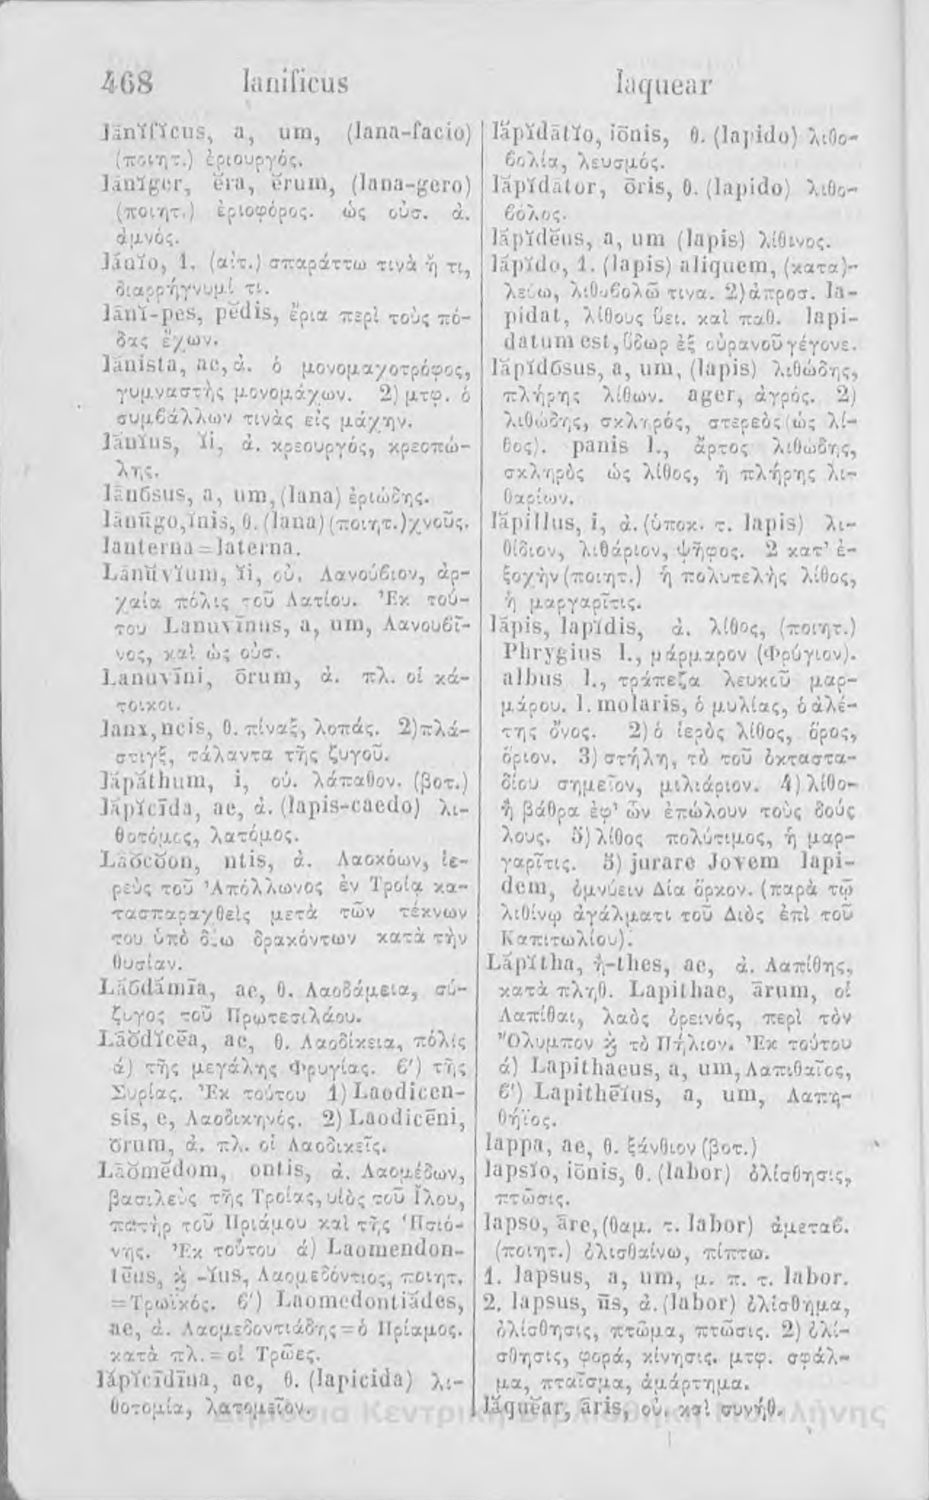 468 lanificus laquear
lānĭfĭcus, a, um, (lana-facio)
(ποιητ.) ἐριουργός.
lānĭger, ĕra, ĕrum, (lana-gero)
(ποιητ.) ἐριοφόρος. ὡς οὐσ. ἀ.
ἀμνός.
lănĭo, 1. (αἰτ.) σπαράττω τινὰ ἤ τι,
διαρρήγνυμί τι.
lānĭ-pes, pĕdis, ἔρια περὶ τοὺς πό-
δας ἔχων.
lănista, ae, ἀ. ὁ μονομαχοτρόφος,
γυμναστὴς μονομάχων. 2) μτφ. ὁ
συμβάλλων τινὰς εἰς μάχην.
lănĭus, ĭi, ἀ. κρεουργός, κρεοπώ-
λης.
lānōsus, a, um, (lana) ἐριώδης.
lānūgo, ĭnis, θ. (lana) (ποιητ.) χνοῦς.
lanterna = laterna.
Lānŭvĭum, ĭi, οὐ. Λανούβιον, ἀρ-
χαία πόλις τοῦ Λατίου. Ἐκ τού-
του Lanuvīnus, a, um, Λανουβῖ-
νος, καὶ ὡς οὐσ.
Lanuvīni, ōrum, ἀ. πλ. οἱ κά-
τοικοι.
lanx, ncis, θ. πίναξ, λοπάς. 2) πλά-
στιγξ, τάλαντα τῆς ζυγοῦ.
lăpăthum, i, οὐ. λάπαθον. (βοτ.)
lăpĭcīda, ae, ἀ. (lapis-caedo) λι-
θοτόμος, λατόμος.
Lāŏcŏon, ntis, ἀ. Λαοκόων, ἱε-
ρεὺς τοῦ Ἀπόλλωνος ἐν Τροίᾳ κα-
τασπαραχθεὶς μετὰ τῶν τέκνων
του ὑπὸ δύω δρακόντων κατὰ τὴν
θυσίαν.
Lāŏdămīa, ae, θ. Λαοδάμεια, σύ-
ζυγος τοῦ Πρωτεσιλάου.
Lāŏdĭcēa, ae, θ. Λαοδίκεια, πόλις
ά) τῆς μεγάλης Φρυγίας. β') τῆς
Συρίας. Ἐκ τούτου 1) Laodicen-
sis, e, Λαοδικηνός. 2) Laodicēni,
ōrum, ἀ. πλ. οἱ Λαοδικεῖς.
Lāŏmĕdom, ontis, ἀ. Λαομέδων,
βασιλεὺς τῆς Τροίας, υἱὸς τοῦ Ἴλου,
πατὴρ τοῦ Πριάμου καὶ τῆς Ἡσιό-
νης. Ἐκ τούτου ά) Laomendon-
tēus, ϗ -ĭus, Λαομεδόντιος, ποιητ.
= Τρωϊκός. β') Laomedontiădes,
ae, ἀ. Λαομεδοντιάδης = ὁ Πρίαμος.
κατὰ πλ. = οἱ Τρῶες.
lăpĭcīdīna, ae, θ. (lapicida) λι-
θοτομία, λατομεῖον.
lăpĭdātĭo, iōnis, θ. (lapido) λιθο-
βολία, λευσμός.
lăpĭdātor, ōris, θ. (lapido) λιθο-
βόλος.
lăpĭdĕus, a, um (lapis) λίθινος.
lăpĭdo, 1. (lapis) aliquem, (κατα)-
λεύω, λιθοβολῶ τινα. 2) ἀπροσ. la-
pidat, λίθους ὕει. καὶ παθ. lapi-
datum est, ὕδωρ ἐξ οὐρανοῦ γέγονε.
lăpĭdōsus, a, um, (lapis) λιθώδης,
πλήρης λίθων. ager, ἀγρός. 2)
λιθώδης, σκληρός, στερεὸς (ὡς λί-
θος). panis l., ἄρτος λιθώδης,
σκληρὸς ὡς λίθος, ἢ πλήρης λι-
θαρίων.
lăpillus, i, ἀ. (ὑποκ. τ. lapis) λι-
θίδιον, λιθάριον, ψῆφος. 2 κατ' ἐ-
ξοχὴν (ποιητ.) ἡ πολυτελὴς λίθος,
ἡ μαργαρῖτις.
lăpis, lapĭdis, ἀ. λίθος, (ποιητ.)
Phrygius l., μάρμαρον (Φρύγιον).
albus l., τράπεζα λευκοῦ μαρ-
μάρου. l. molaris, ὁ μυλίας, ὁ ἀλέ-
της ὄνος. 2) ὁ ἱερὸς λίθος, ὅρος,
ὅριον. 3) στήλη, τὸ τοῦ ὀκταστα-
δίου σημεῖον, μιλιάριον. 4) λίθο-
ἡ βάθρα ἐφ' ὧν ἐπώλουν τοὺς δούς
λους. 5) λίθος πολύτιμος, ἡ μαρ-
γαρῖτις. 5) jurare Jovem lapi-
dem, ὀμνύειν Δία ὅρκον. (παρὰ τῷ
λιθίνῳ ἀγάλματι τοῦ Διὸς ἐπὶ τοῦ
Καπιτωλίου).
Lăpĭtha, ἡ-thes, ae, ἀ. Λαπίθης,
κατὰ πληθ. Lapithae, ārum, οἱ
Λαπίθαι, λαὸς ὀρεινός, περὶ τὸν
Ὄλυμπον ϗ τὸ Πήλιον. Ἐκ τούτου
ά) Lapithaeus, a, um, Λαπιθαῖος,
β') Lapithēĭus, a, um, Λαπη-
θήϊος.
lappa, ae, θ. ξάνθιον (βοτ.)
lapsĭo, iōnis, θ. (labor) ὀλίσθησις,
πτῶσις.
lapso, āre, (θαμ. τ. labor) ἀμεταβ.
(ποιητ.) ὀλισθαίνω, πίπτω.
1. lapsus, a, um, μ. π. τ. labor.
2. lapsus, ūs, ἀ. (labor) ὀλίσθημα,
ὀλίσθησις, πτῶμα, πτῶσις. 2) ὀλί-
σθησις, φορά, κίνησις. μτφ. σφάλ-
μα, πταῖσμα, ἁμάρτημα.
lăquĕar, āris, οὐ. καὶ συνήθ.
Δημόσια Κεντρική Βιβλιοθήκη Κομιλήνης